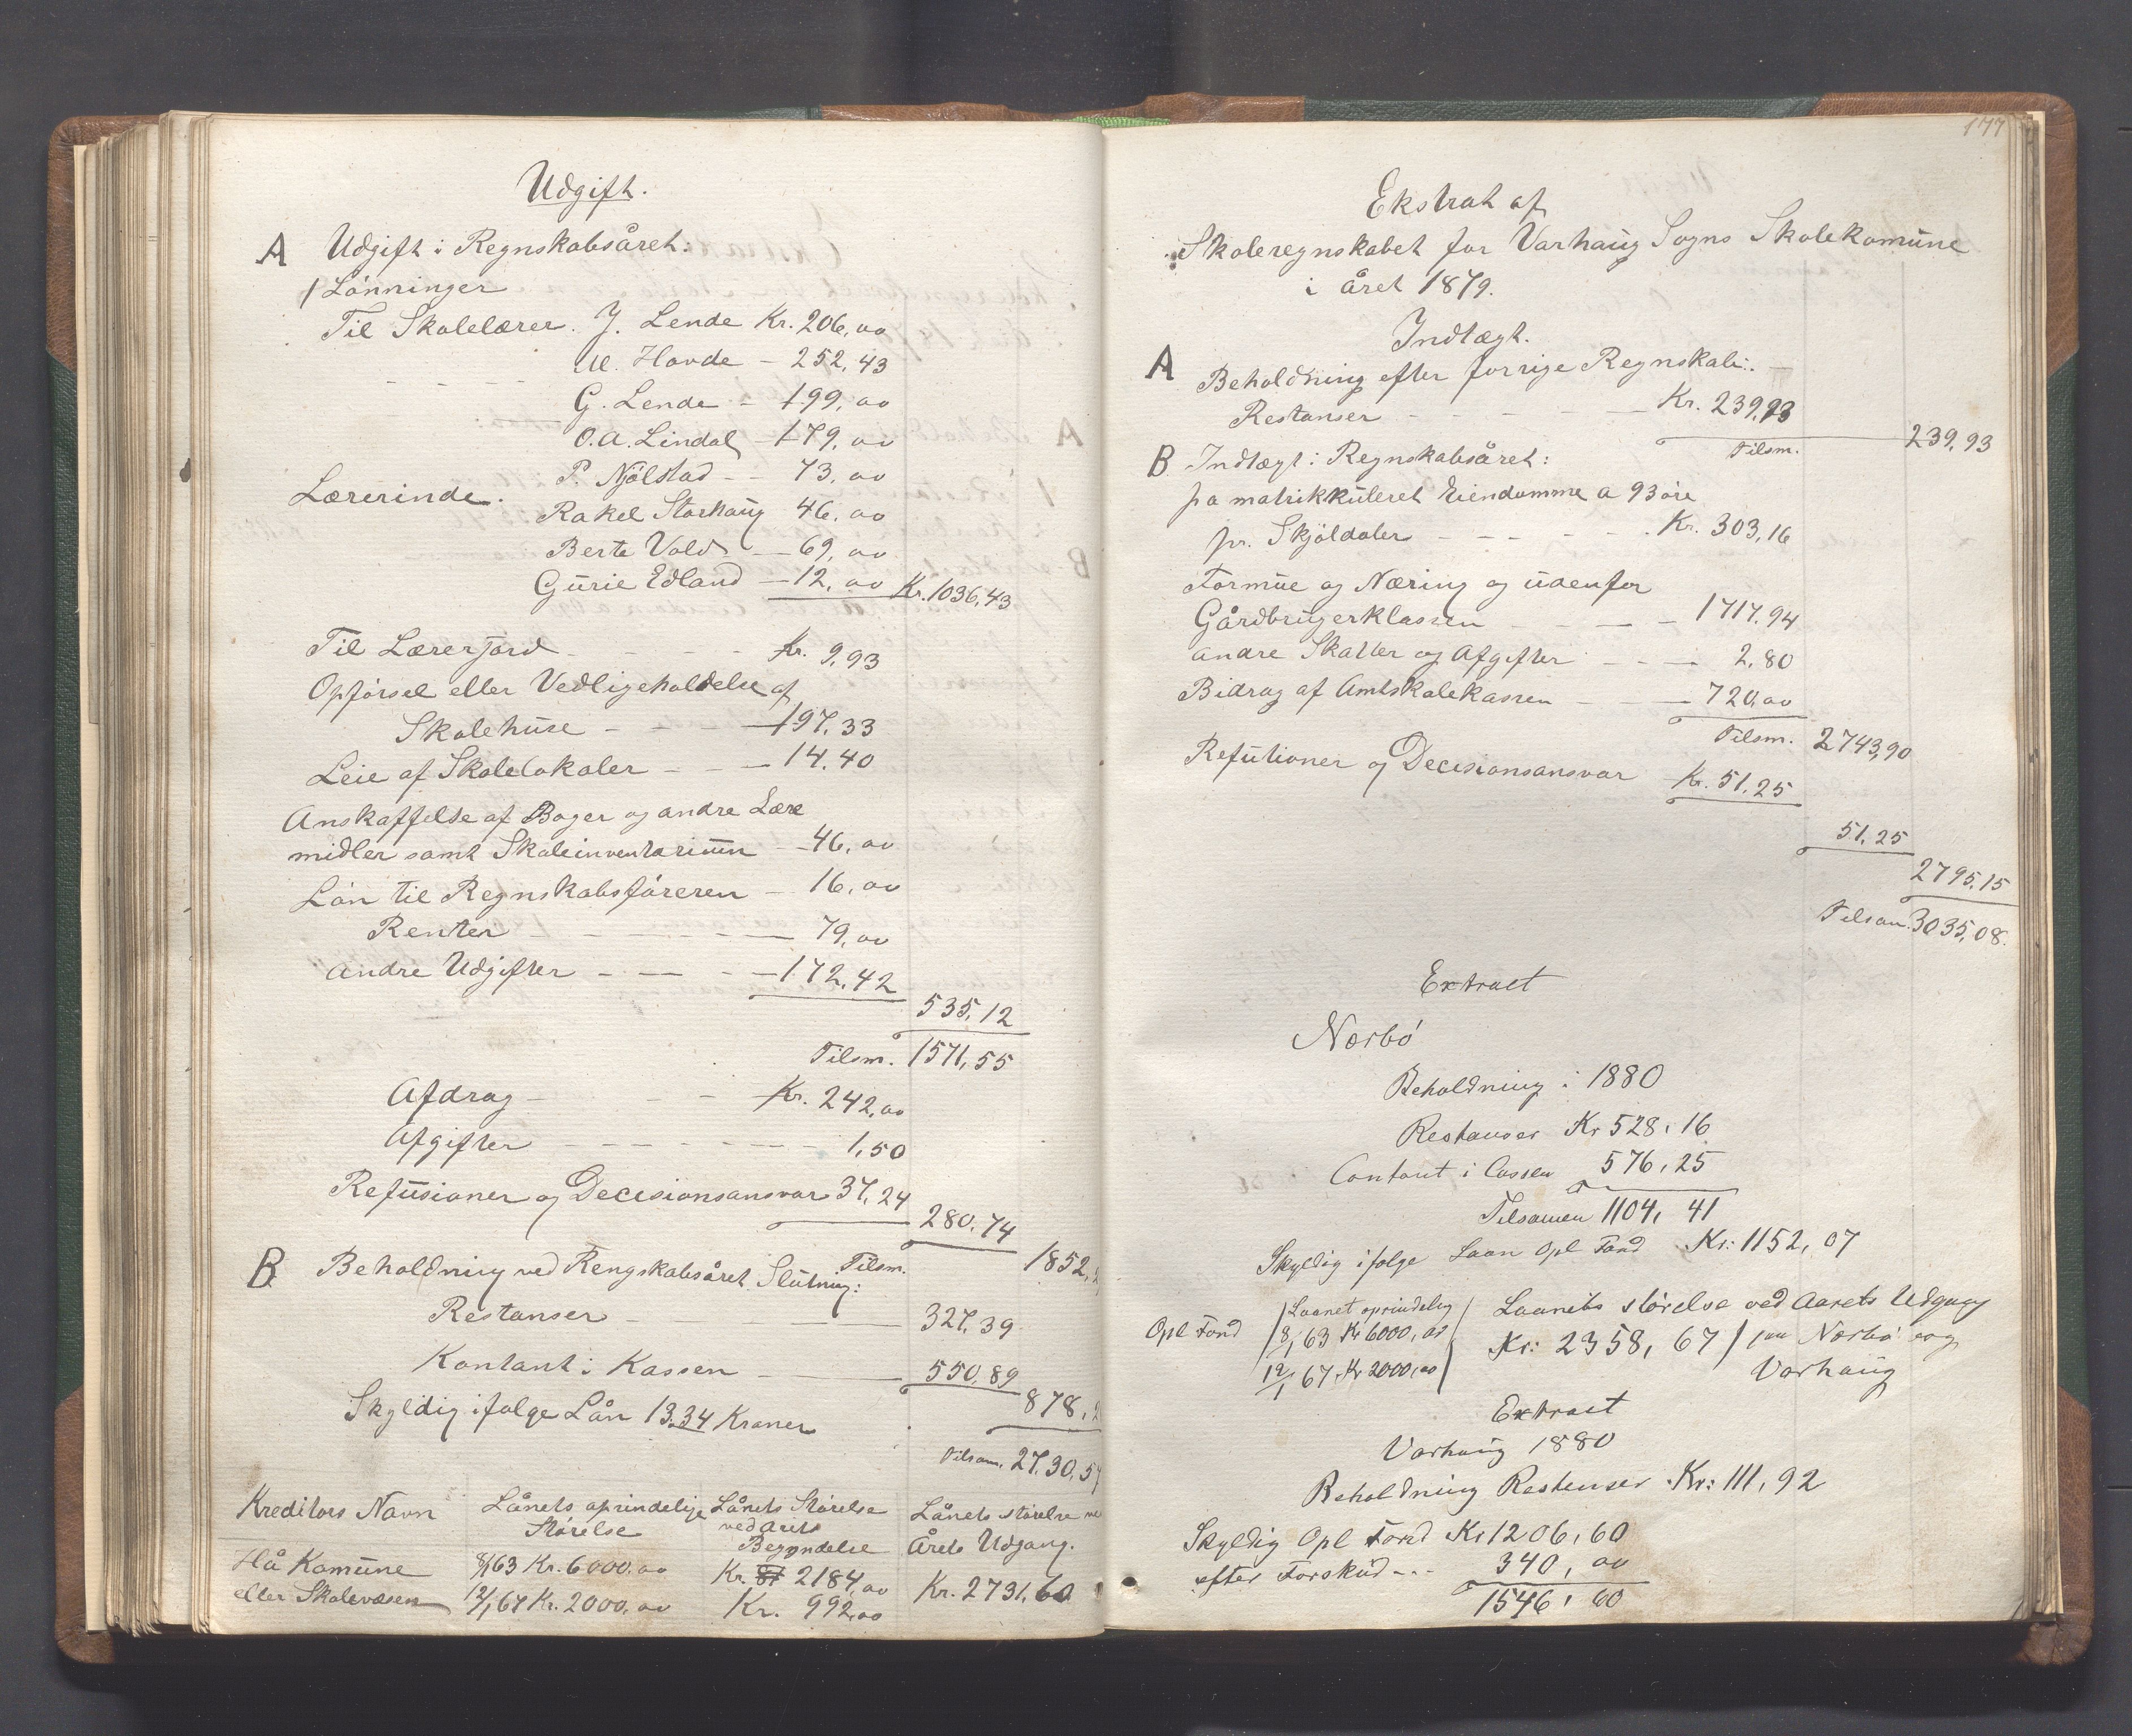 Udgift.
A Udgift i Regnskabsåret:
1 Lönninger
Til Skolelærer. J. Lende Kr. 206,00
- - - - M. Hovde - 252,43
G. Lende - 199,00
O.A. Lindal - 179,00
P. Njölstad - - 73,00
Lærerinde. Rakel Storhaug 46,00
Berte Vold - 69,00
Gurie Edland - 12,00 Kr. 1036,43
Til Lærerjord - - - - Kr. 9,93
Opförsel eller Vedligeholdelse af
Skolehuse - - - 197,33
Leie af Skolelokaler - - - 14,40
Anskaffelse af Boger og andre Lære
midler samt Skoleinventarium - 46,00
Lön til Regnskabsföreren - 16,00
Renter - - - - - 79,00
andre Udgifter - - - - 172,42
535,12
Tilsm. 1571,55
Afdrag - - - Kr. 242,00
Afgifter - - - - - - 1,50
Refusioner og Decisionsansvar 37,24
280,74
Tilsm. 1852,
B Beholdning ved Rengskabsåret Slutning:
Restanser - - - - 327,39
Kontant i Kassen - - 550,89
878,
Skyldig ifolge Lån 1334 Kroner
Tilsam. 27,30,5
Kreditors Navn Lånets oprindelige Lånets Störelse Lånets störelse
Störelse ved årets Årets Udgang.
Begyndelse
Hå Komune 8/1 63 Kr. 6000,00 Kr. 2184,00 Kr. 2731,60
eller Skolevæsen 12/1 67 Kr. 2000,00 Kr. 992,00
177
Ekstrat af
Skoleregnskabet for Varhaug Sogns Skolekomune
i året 1879.
Indtægt.
A Beholdning efter forrige Regnskab:. -
Restanser - - - - - Kr. 239,93
Tilsm. 239,93
B Indtægt i Regnskabsåret:
pa matrikkuleret Eiendomme a 93 öre
pr. Skjöldaler - - - - - . Kr. 303,16
Formue og Næring og udenfor
Gårdbrugerklassen - - - - 1717,94
andre Skatter og Afgifter - - - 2,80
Bidrag af Amtskolekassen - - - 720,00
Tilsm. 2743,90
Refutioner og Decisionsansvar Kr. 51,25
51,25
2795,15
Tilsam. 3035,08.
Extract
Nærbö
Beholdning i 1880
Restanser Kr 528,16
Contant i Cassen 576,25
Tilsamen 1104,41
Skyldig ifolge Laan Opl Fond Kr: 1152,07
Opl Fond Laanet oprindelig Laanets störelse ved Aarets Udgang
8/1 63 Kr 6000,00 Kr: 2358,67 paa Nærbö og
12/1 67. Kr 2000,00 Varhaug
Extract
Varhaug 1880
Beholdning Restenser Kr: 111,92
Skyldig Opl Fond Kr 1206,60
efter Forskud - - - 340,00
1546,60